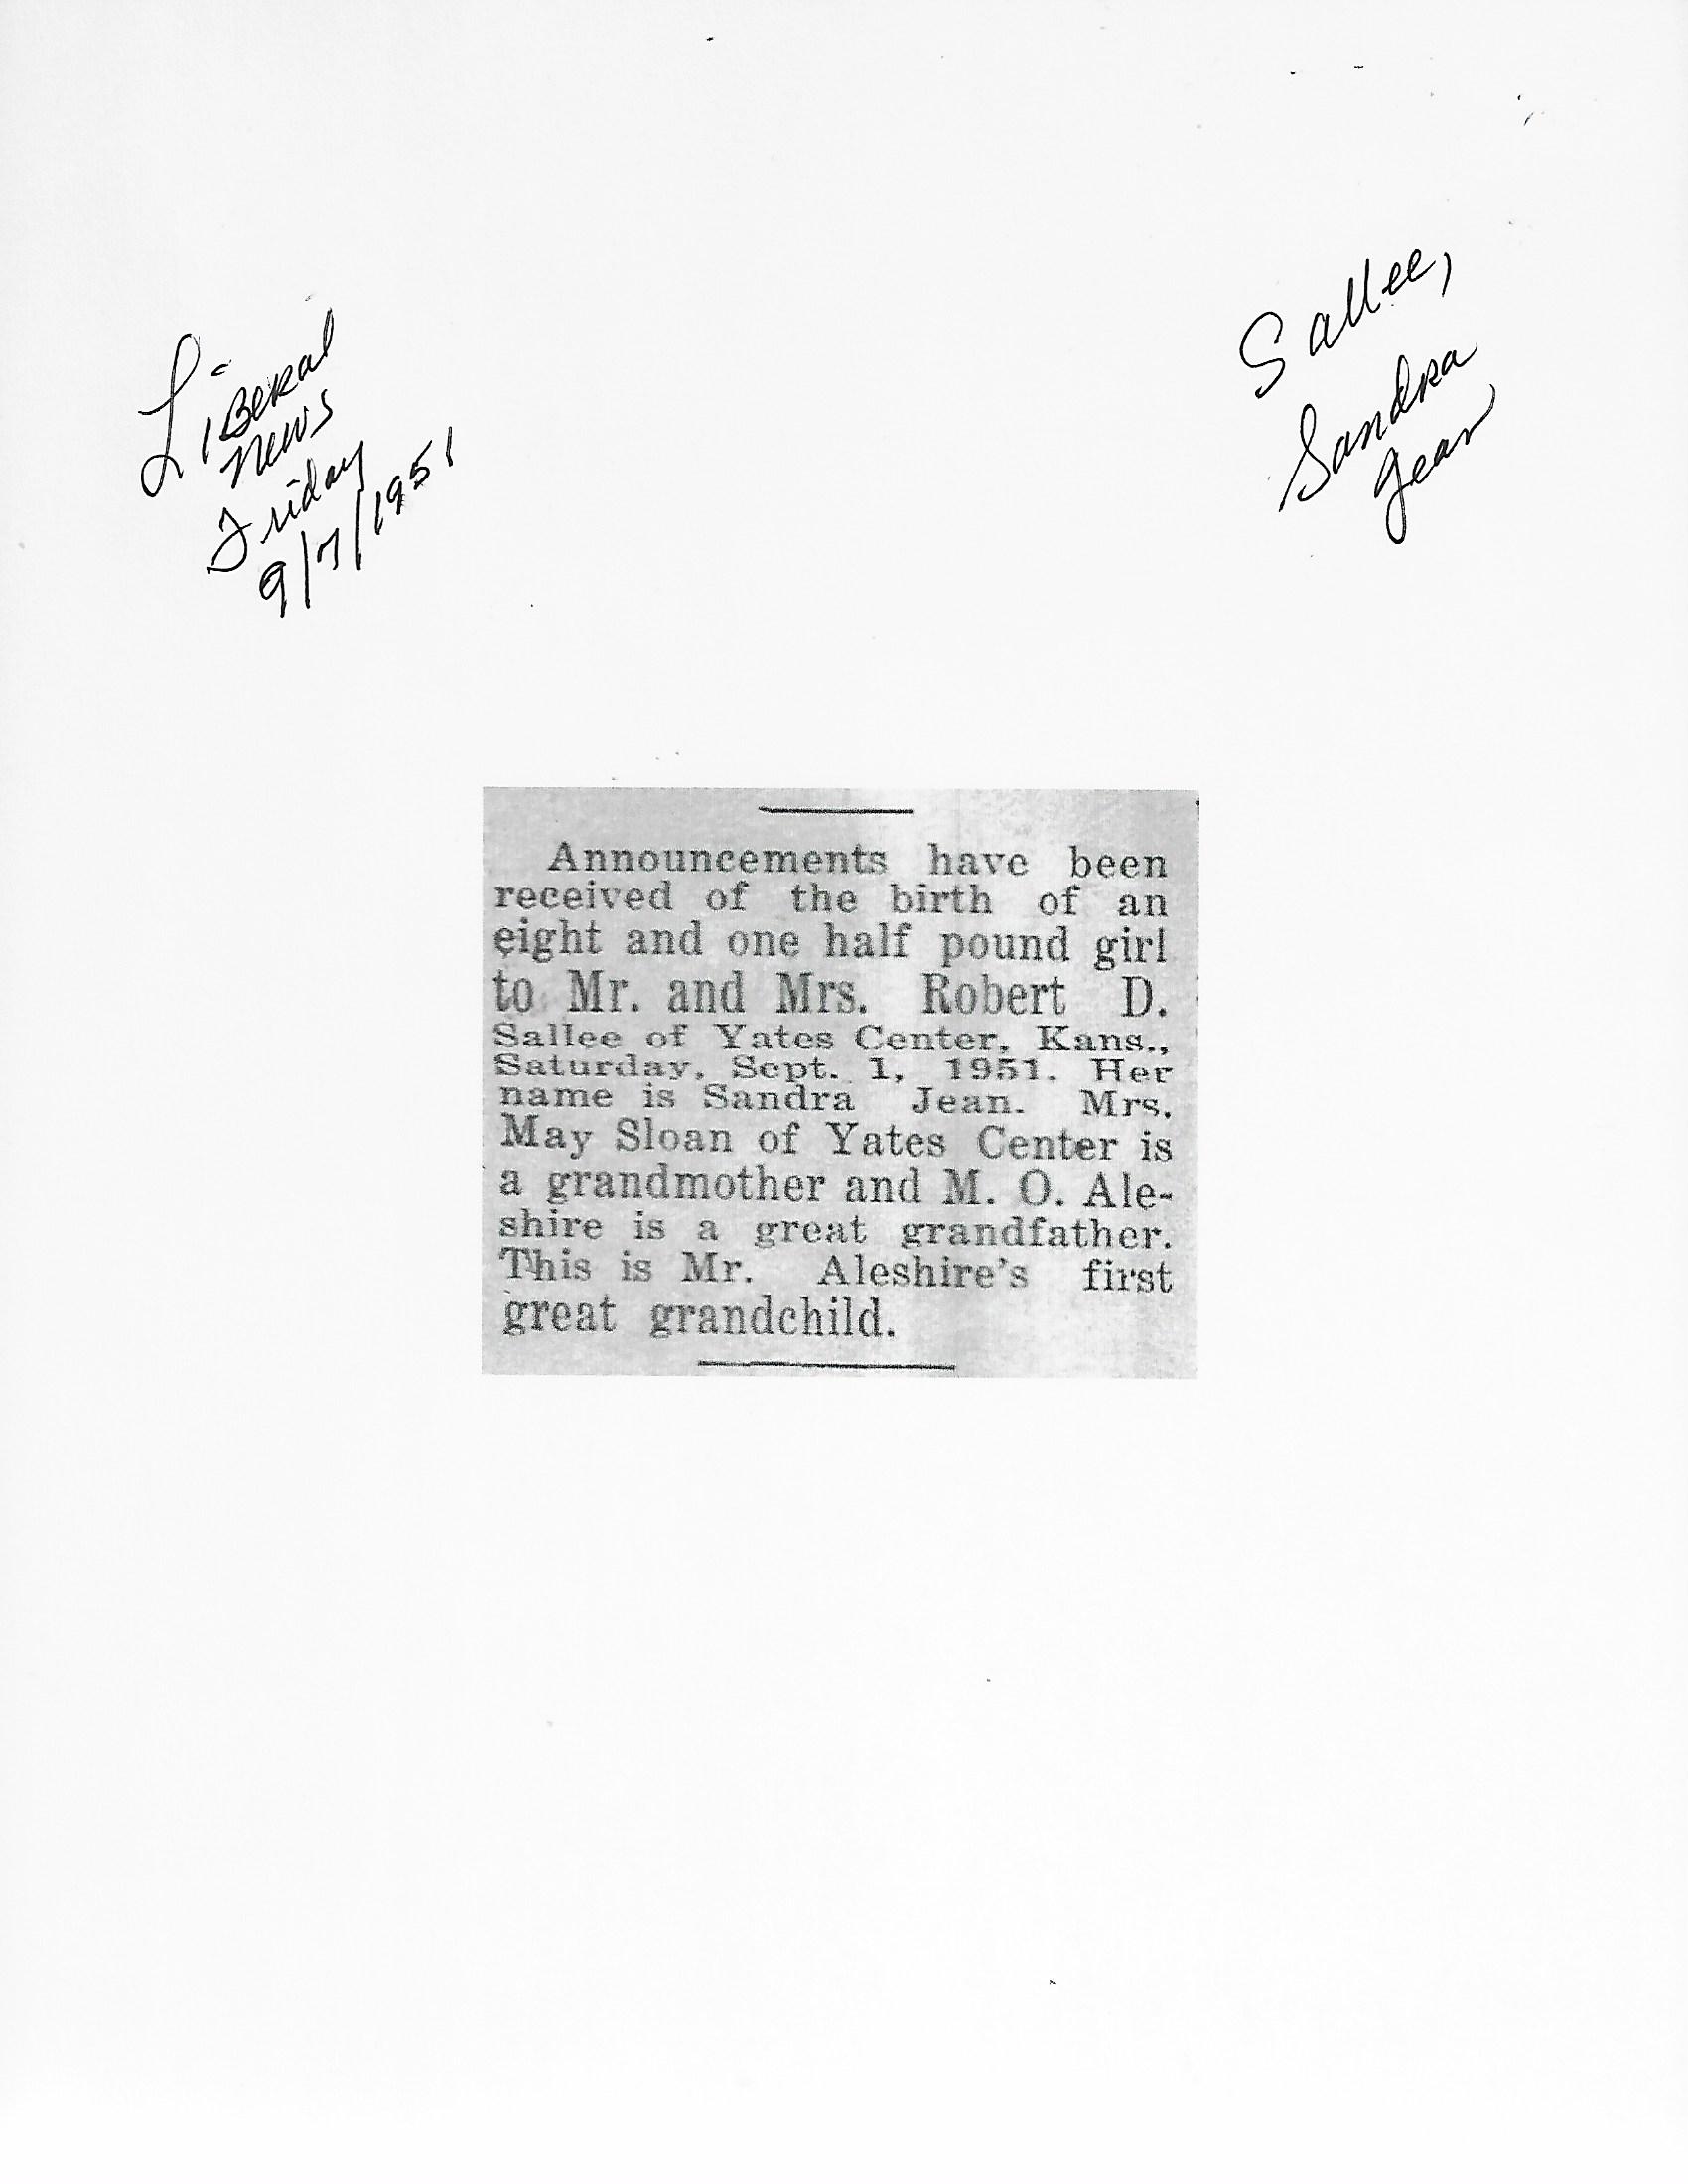 Liberal
News
Friday
9/7/1951
Sallee,
Sandra
Jean
Announcements have been
received of the birth of an
eight and one half pound girl
to Mr. and Mrs. Robert D.
Sallee of Yates Center, Kans.,
Saturday, Sept. 1, 1951. Her
name is Sandra Jean. Mrs.
May Sloan of Yates Center is
a grandmother and M. O. Ale-
shire is a great grandfather.
This is Mr. Aleshire's first
great grandchild.